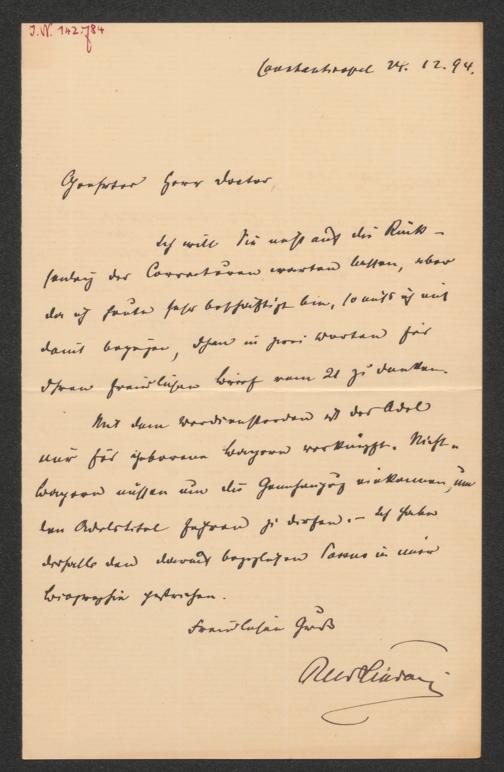 J.N. 142.784
Constantinopel 24. 12. 94.
Geehrter Herr Doctor,
Ich will Sie nicht auf die Rück-
sendung der Correcturen warten lassen, aber
da ich heute sehr beschäftigt bin, so muß ich mich
damit begnügen, Ihnen in zwei Worten für
Ihren freundlichen Brief vom 21 zu danken.
Mit dem Verdienstorden ist der Adel
nur für geborene Bayern verknüpft. Nicht-
Bayern müssen um die Genehmigung einkommen, um
den Adelstitel führen zu dürfen. – Ich habe
deshalb den darauf bezüglichen Passus in meiner
Biographie gestrichen.
Freundlichen Gruß
Rud Lindau